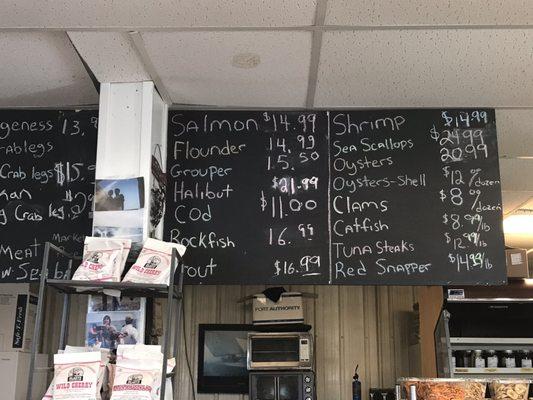 geness 13.9
ab-legs
Crab legs $15
Kan
Crab
Meat Market
w. Sea
Salmon $14.99
Flounder 14.99
Grouper 15.50
Halibut $21.99
Cod $11.00
Rockfish 16.99
Trout $16.99
Shrimp $14.99
Sea Scallops $24.99
Oysters 20.99
Oysters-Shell $12/dozen
Clams $8/dozen
Catfish $8.99/lb
Tuna Steaks $12.99/lb
Red Snapper $14.99/lb
PORT AUTHORITY
WILD CHERRY